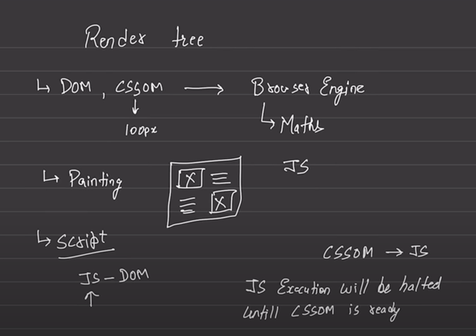 Render tree
↳ DOM, CSSOM → Browser Engine
↓ ↳ Maths
100px
JS
↳ Painting
X
X
↳ Script
CSSOM → JS
JS - DOM
↑
JS Execution will be halted
untill CSSOM is ready